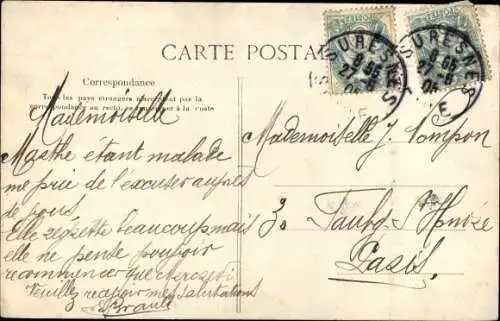 CARTE POSTALE
Correspondance
Tous les pays étrangers n'acceptent pas la
correspondance au recto, se renseigner à la poste
SURESNES
8 55
27 - 6
05
E
SURESNES
27 - 6
05
E
Mademoiselle
Marthe étant malade
me prie de l'excuser auprès
de vous
Elle regrette beaucoup mais
elle ne pense pouvoir
recommencer que mercredi
Veuillez recevoir mes salutations
Mademoiselle J.
Faubg St Honoré
Paris